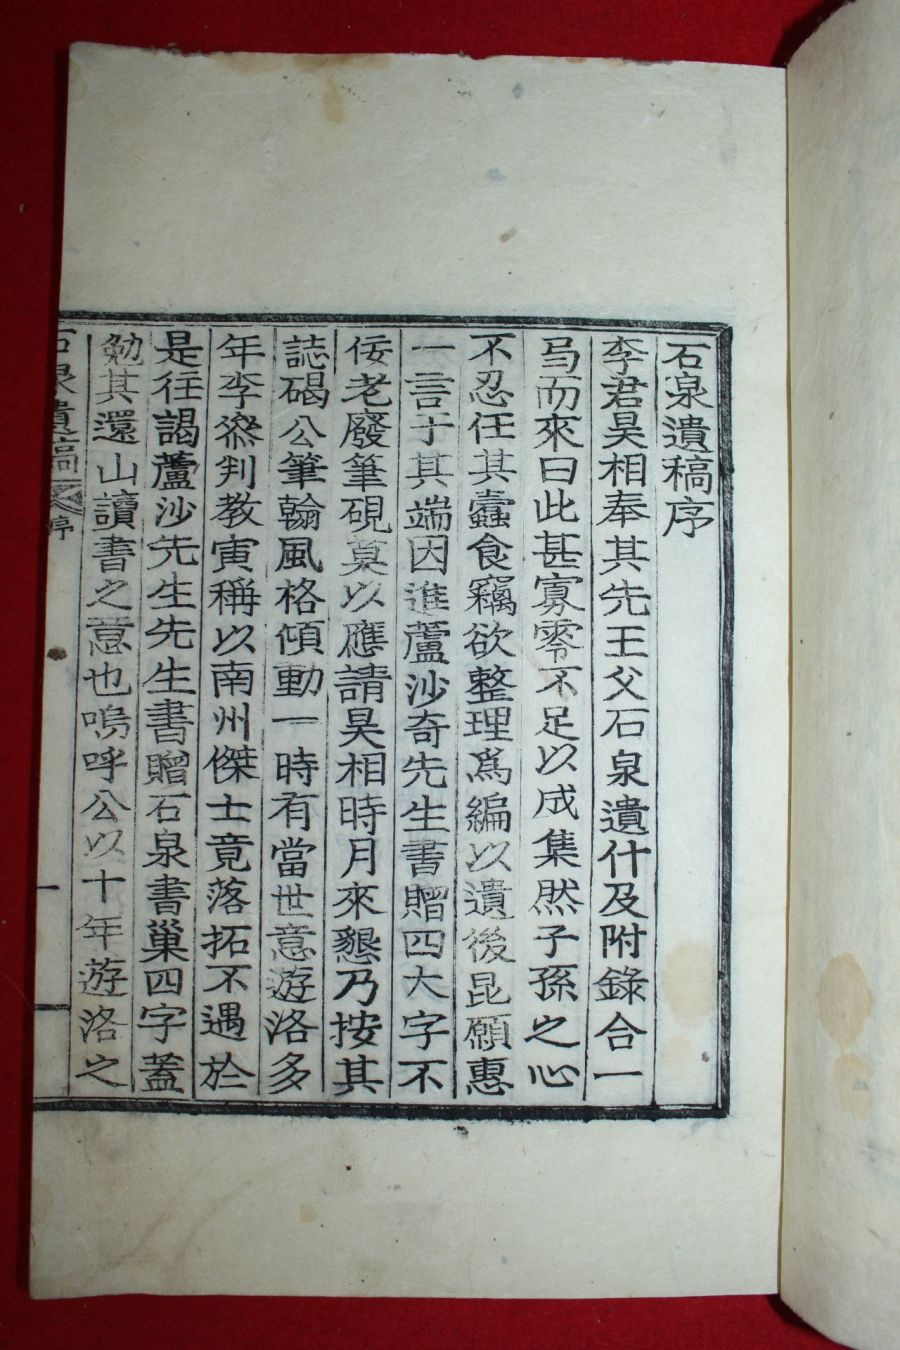 石泉遺稿序
李君昊相奉其先王父石泉遺什及附錄合一
弓而來曰此甚寡零不足以成集然子孫之心
不忍任其蠹食竊欲整理爲編以遺後昆願惠
一言于其端因進蘆沙奇先生書贈四大字不
佞老廢筆硯莫以應請昊相時月來懇乃按其
誌碣公筆翰風格傾動一時有當世意遊洛多
年李判教寅稱以南州傑士竟落拓不遇於
是往謁蘆沙先生先生書贈石泉書巢四字蓋
勉其還山讀書之意也嗚呼公以十年遊洛之
石泉遺稿 序 一